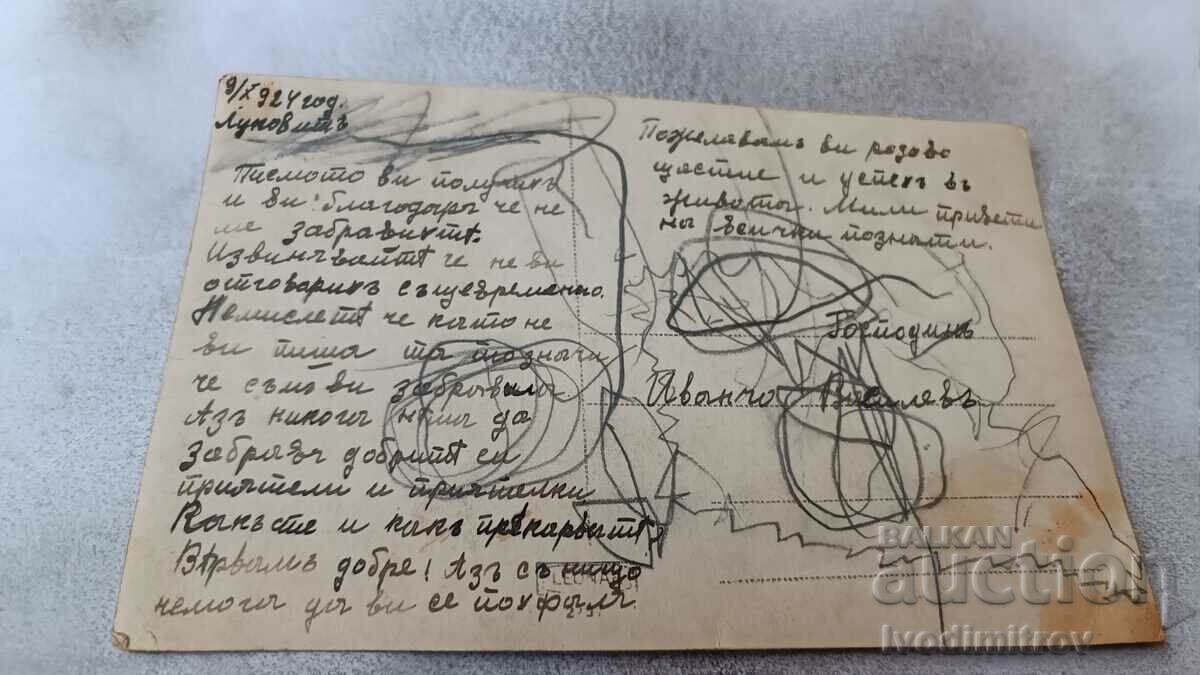 9/X 924 год.
Луковитъ
Писмото ви получихъ
и ви благодаря че не
ме забравихтѣ.
Извинѣвайтѣ че не ви
отговарихъ същевременно.
Немислетѣ че като не
ви пиша та тозначи
че съмъ ви забравила
Азъ никога нѣма да
забравѫ добритѣ си
приятели и приятелки
Какъ сте и какъ прѣкарватѣ?
Вѣрвамъ добре! Азъ съ нищо
немога да ви се похваля.
Пожелавамъ ви розово
щастие и успехъ въ
живота. Мили привети
на всички познати.
Господинъ
Иванчо Василевъ
LEONAR
BALKAN
auction
Ivodimitrov